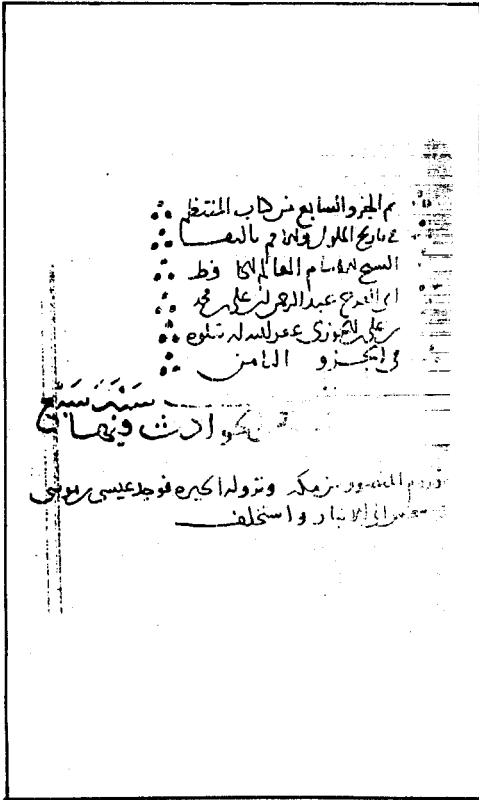 تم الجزو السابع من كتاب المنتظم
في تاريخ الملوك والامم تاليف
الشيخ الامام العالم الحافظ
ابي الفرج عبد الرحمن بن علي بن محمد
بن علي الجوزي غفر الله له يتلوه
في الجزو الثامن
سنة سبع
الحوادث فيها
قدوم المنصور من مكه ونزوله الحيره فوجد عيسى بن موسى
الى الانبار واستخلف